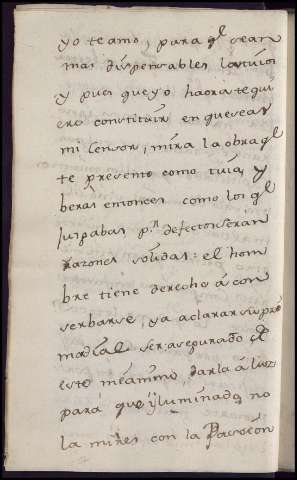 yo te amo, para q.e sean
mas dispensables las tuias
y pues que yo haora te qui
ero constituir en que seas
mi censor, mira la obra q.e
te presento como tuia, y
beras entonces como los q.e
jusgabas p.r defectos seran
razones solidas: el hom
bre tiene derecho á con
serbarse, ya aclarar su pri
mordial ser: asegurado
este me animo, darla á luz
para que yluminado, no
la mires con la Pasion